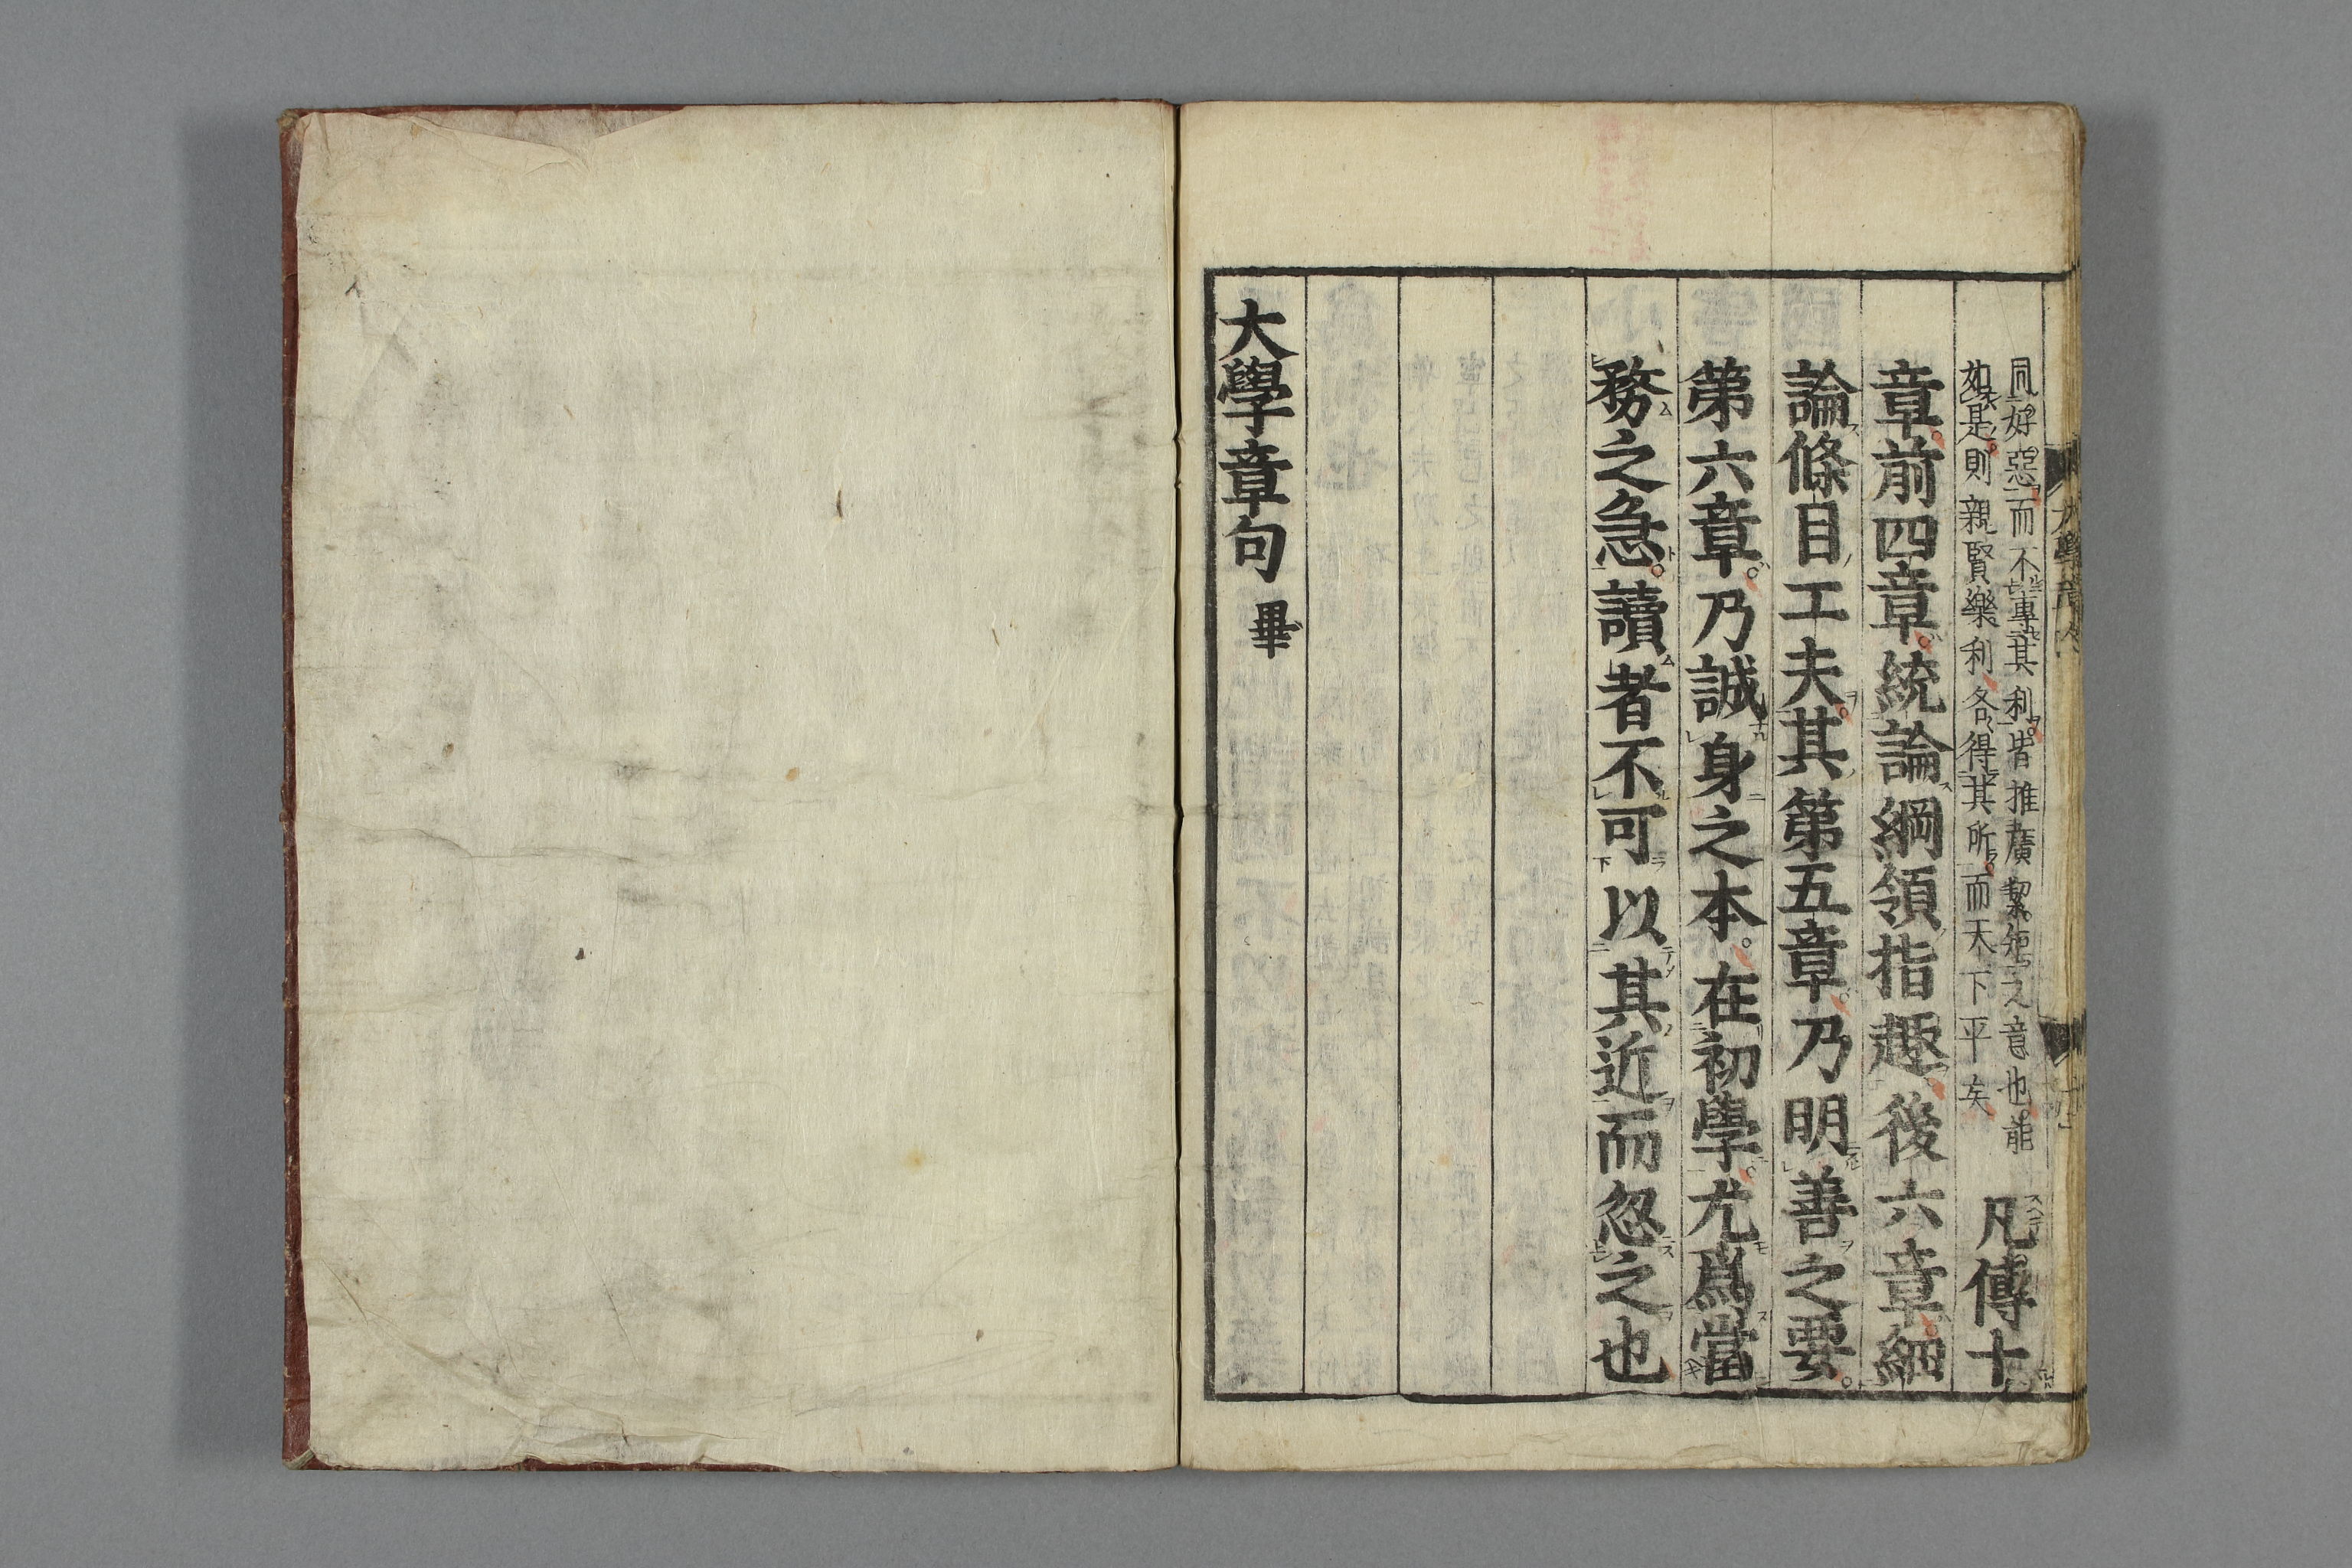 同好惡而不專其利皆推廣絜矩之意也能
如是則親賢樂利各得其所而天下平矣
凡傳十
章前四章統論綱領指趣後六章細
論條目工夫其第五章乃明善之要
第六章乃誠身之本在初學尤爲當
務之急讀者不可以其近而忽之也
大學章句 畢